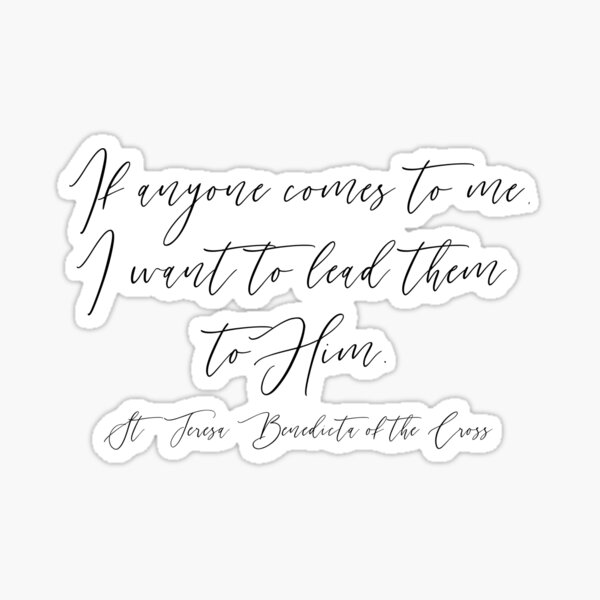 If anyone comes to me.
I want to lead them
to Him.
St Teresa Benedicta of the Cross